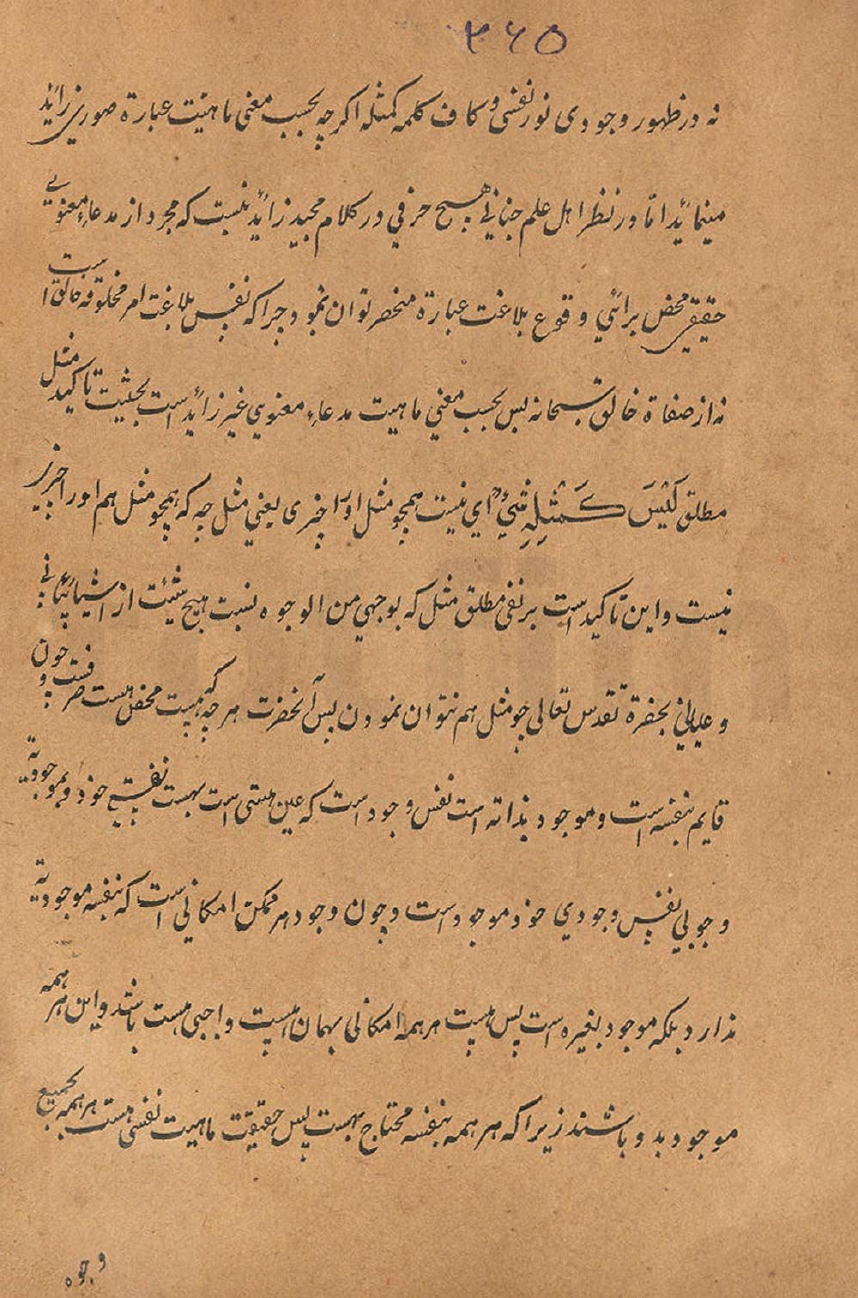 ۳۶۵
نه در ظهور وجودی نور نفسی و کاف کلمه کمثله اگرچه بحسب معنی ماهیت عبارة صوری زائد
مینماید اما در نظر اهل علم جنانی هیچ حرفی در کلام مجید زائد نیست که مجرد از مدعاء معنویی
حقیقی محض برائی وقوع بلاغت عبارة منحصر توان نمود چرا که نفس بلاغت امر مخلوقه خالق است
نه از صفاة خالق سبحانه بس بحسب معنی ماهیت مدعاء معنوی غیر زائد است بحثیت تاکید مثل
مطلق لَیْسَ کَمِثْلِهِ شَیْءٌ ای نیست همچو مثل اورا چیزی یعنی مثل چه که همچو مثل هم اورا چیز
نیست و این تاکید است بر نفی مطلق مثل که بوجهی من الوجوه نسبت هیچ شیئت از اشیا
و علیائی بحضرة تقدس تعالی چو مثل هم نتوان نمودن بس آنحضرت هر چه که هست محض هست صرفست و چون
قایم بنفسه است و موجود بذاته است نفس وجود است که عین هستی است بهست نفسیئ خود و بموجودیة
وجوبی نفس وجودی خود موجود است و چون وجود هر ممکن امکانی است که بنفسه موجودیة
ندارد بلکه موجود بغیره است پس هست هر همه امکانی بهمان هست واجبی هست باشند و این هر همه
موجود بدو باشند زیرا که هر همه بنفسه محتاج بهست پس حقیقت ماهیت نفسی هست هر همه بجمیع
وجوه